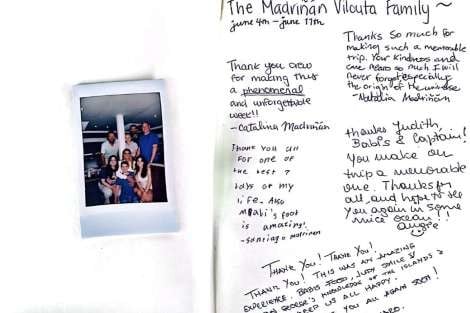 The Madriñan Vilouta Family ~
june 4th - june 11th
Thank you crew
for making this
a phenomenal
and unforgettable
week!!
- Catalina Madriñán
Thank you all
for one of
the best 7
days of my
life. Also
Babi's food
is amazing!
- Santiago Madriñan
Thanks so much for
making such a memorable
trip. Your kindness and
care so much I will
never forget, especially
the origin of the universe
- Natalia Madriñán
thanks Judith,
Babi's & Captain!
You make our
trip a memorable
one. Thanks for
all, and hope to see
you again in some
nice ocean!!
Angie
Thank you! Thank you!
Thank you! This was an amazing
experience. Babis food, Judy smile &
George's knowledge of the islands
us all happy.
you all again soon!